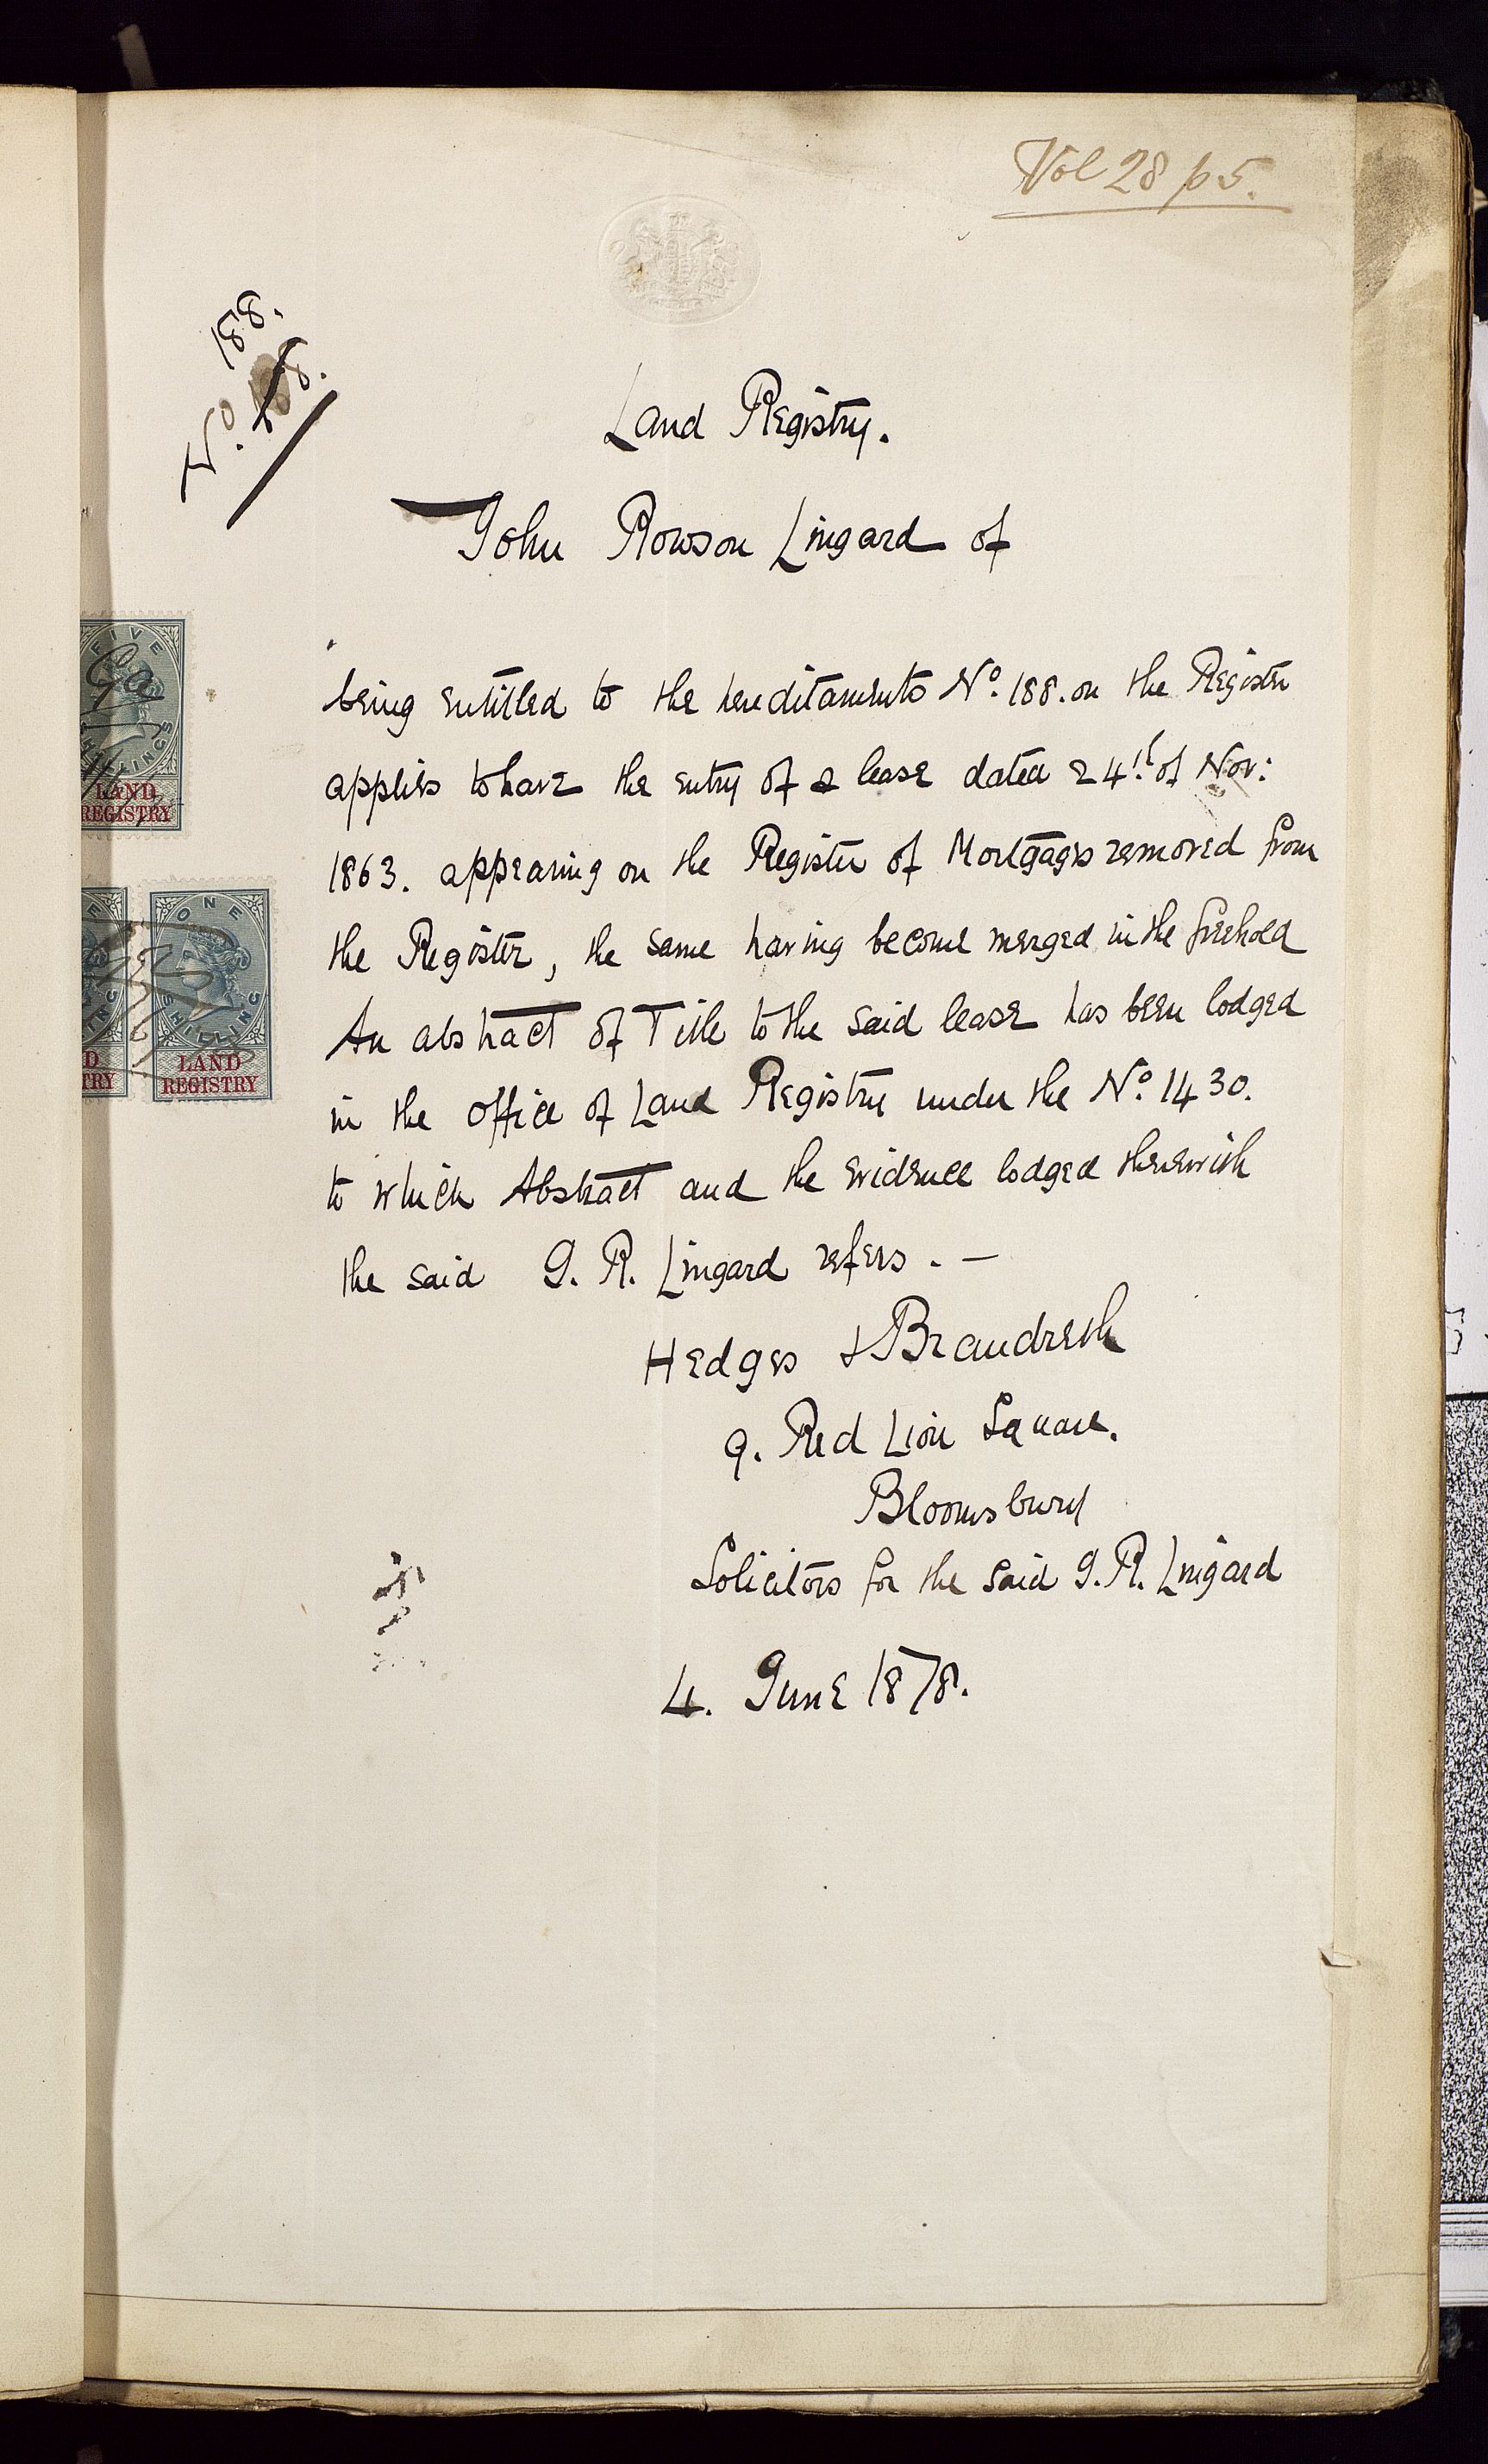 Vol 28 p 5.
188.
No.
Land Registry.
John Rowson Lingard of
being entitled to the hereditaments No. 188. on the Register
applies to have the entry of a lease dated 24th of Nov:
1863. appearing on the Register of Mortgages removed from
the Register, the same having become merged in the freehold
An abstract of Title to the said lease has been lodged
in the office of Land Registry under the No. 1430.
to which Abstract and the evidence lodged therewith
the said J. R. Lingard refers. —
Hedges & Brandreth
9. Red Lion Square.
Bloomsbury
Solicitors for the said J. R. Lingard
4. June 1878.
FIVE
SHILLINGS
LAND
REGISTRY
ONE
SHILLING
LAND
REGISTRY